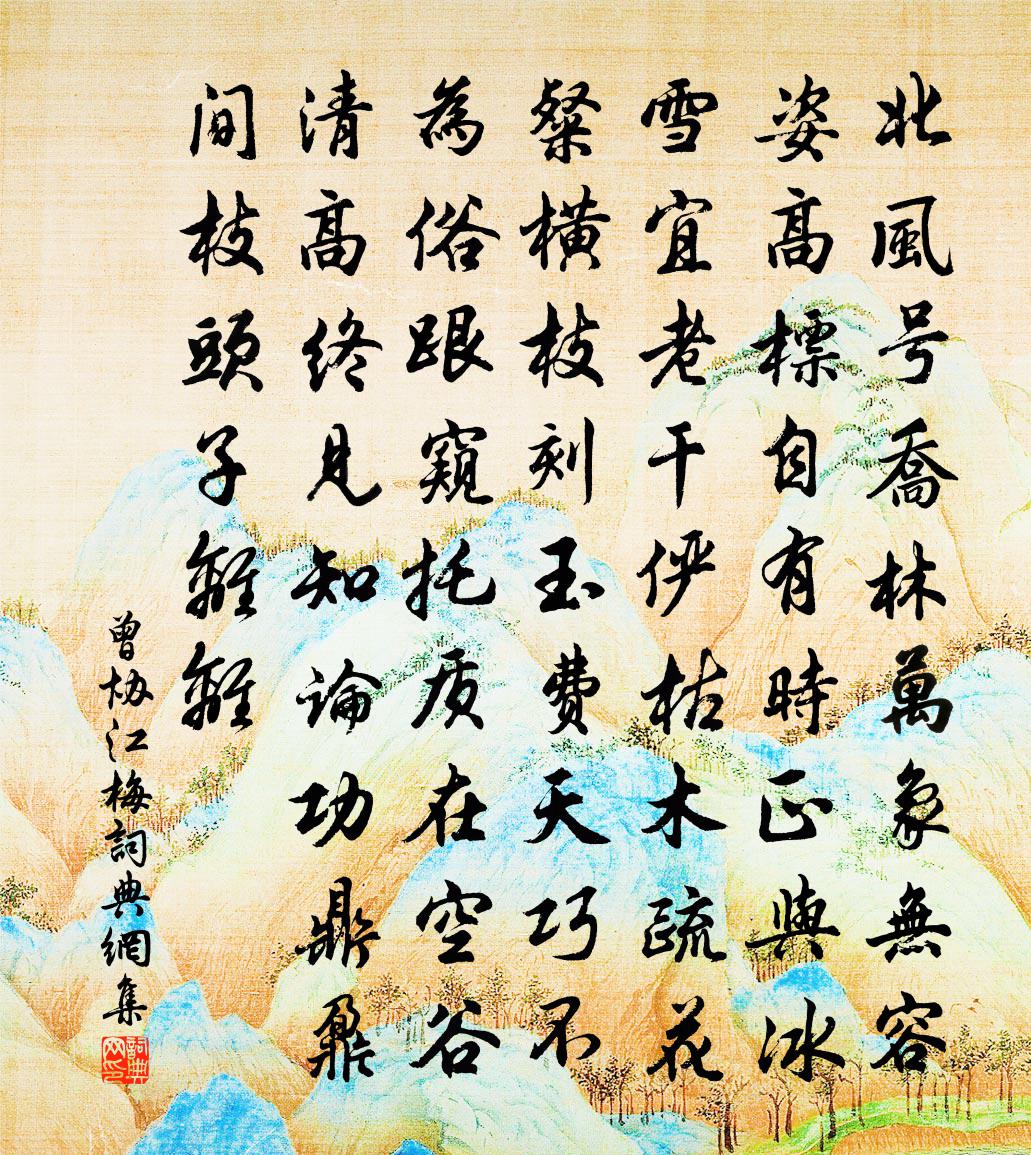 北風号喬林萬象無容
姿高標自有時正與冰
雪宜老干俨枯木疏花
粲横枝刻玉費天巧不
為俗跟窺托质在空谷
清高終見知論功鼎鼐
间枝頭子離離
曾协江梅詞典網集
詞典网印